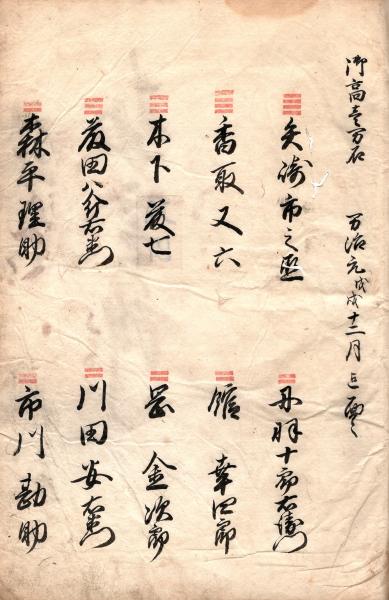 御高壱万石 万治元戊戌十二月
矢嶋市之丞
香取又六
木下藤七
藤田八郎右衛門
森平理助
丹羽十郎右衛門
金次郎
川田安右衛門
市川勘助